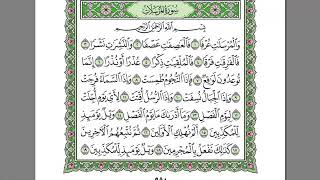 سُورَةُ الْمُرْسَلَاتِ
بِسْمِ اللَّهِ الرَّحْمَٰنِ الرَّحِيمِ
وَالْمُرْسَلَٰتِ عُرْفًا ۝١ فَالْعَٰصِفَٰتِ عَصْفًا ۝٢ وَالنَّٰشِرَٰتِ نَشْرًا ۝٣
فَالْفَٰرِقَٰتِ فَرْقًا ۝٤ فَالْمُلْقِيَٰتِ ذِكْرًا ۝٥ عُذْرًا أَوْ نُذْرًا ۝٦ إِنَّمَا
تُوعَدُونَ لَوَٰقِعٌ ۝٧ فَإِذَا النُّجُومُ طُمِسَتْ ۝٨ وَإِذَا السَّمَآءُ فُرِجَتْ ۝٩
وَإِذَا الْجِبَالُ نُسِفَتْ ۝١٠ وَإِذَا الرُّسُلُ أُقِّتَتْ ۝١١ لِأَيِّ يَوْمٍ أُجِّلَتْ ۝١٢
لِيَوْمِ الْفَصْلِ ۝١٣ وَمَآ أَدْرَىٰكَ مَا يَوْمُ الْفَصْلِ ۝١٤ وَيْلٌ يَوْمَئِذٍ
لِّلْمُكَذِّبِينَ ۝١٥ أَلَمْ نُهْلِكِ الْأَوَّلِينَ ۝١٦ ثُمَّ نُتْبِعُهُمُ الْءَاخِرِينَ ۝١٧
كَذَٰلِكَ نَفْعَلُ بِالْمُجْرِمِينَ ۝١٨ وَيْلٌ يَوْمَئِذٍ لِّلْمُكَذِّبِينَ ۝١٩
٥٨٠